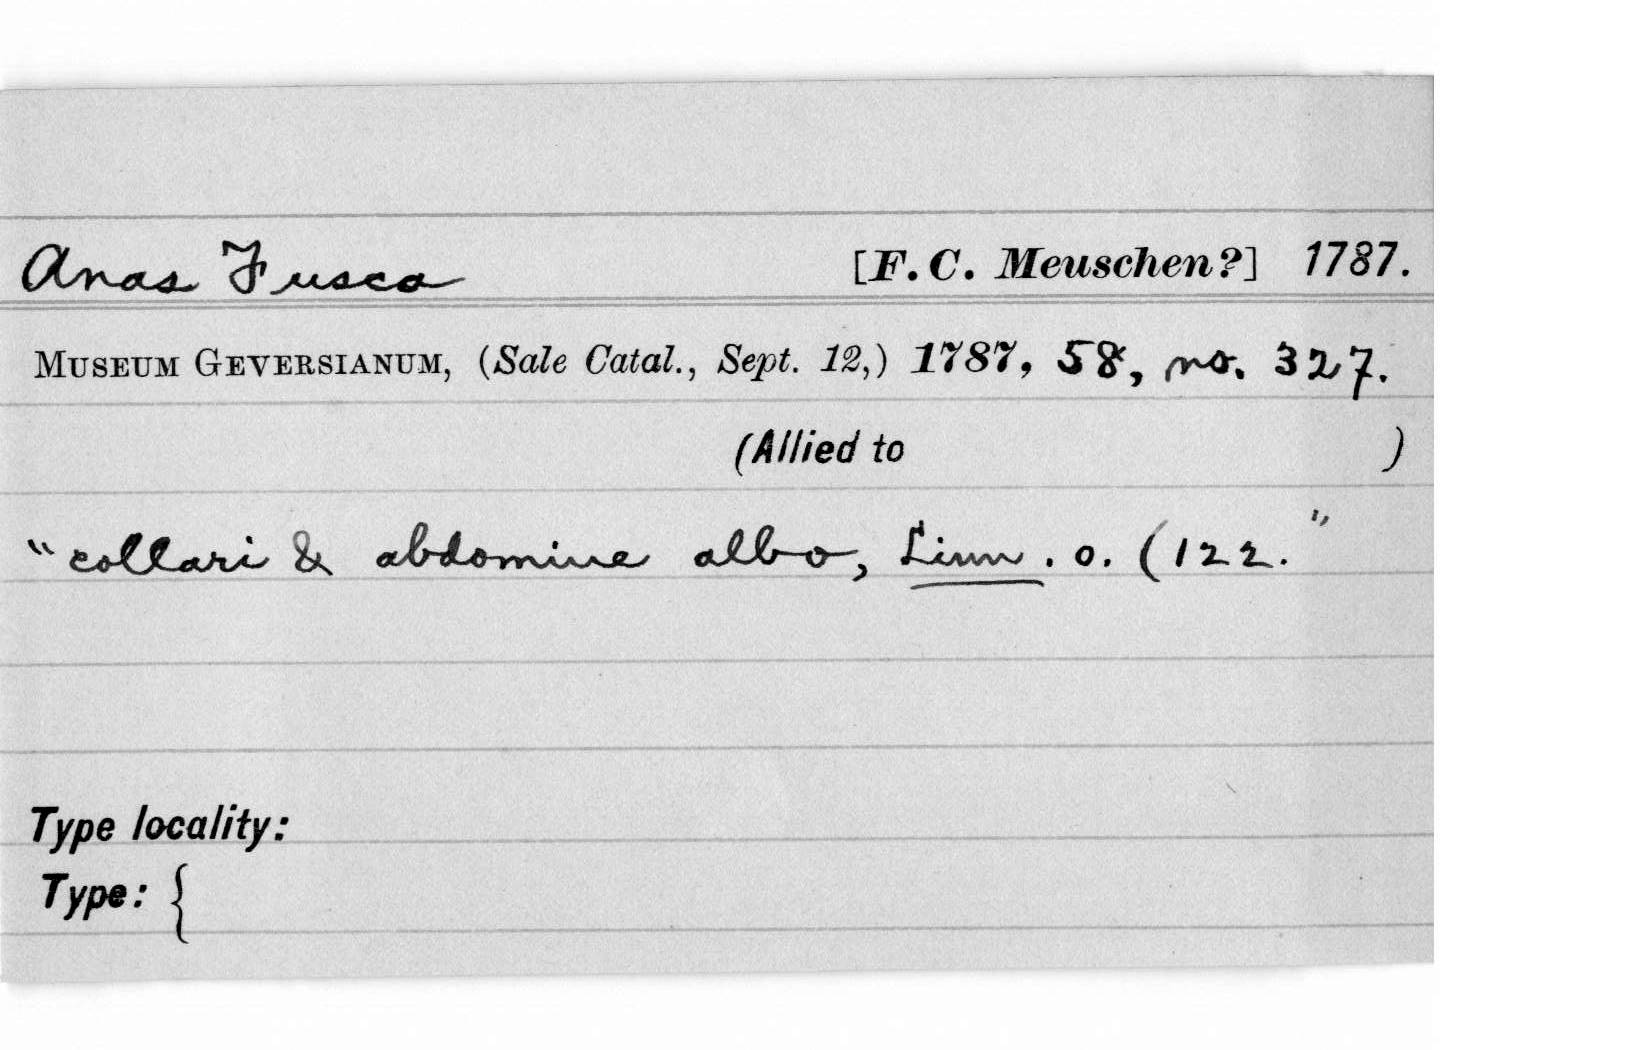 Anas Fusca [F. C. Meuschen?] 1787.
Museum Geversianum, (Sale Catal., Sept. 12,) 1787, 58, no. 327.
(Allied to )
"collari & abdomine albo, Linn. o. (122."
Type locality:
Type: {